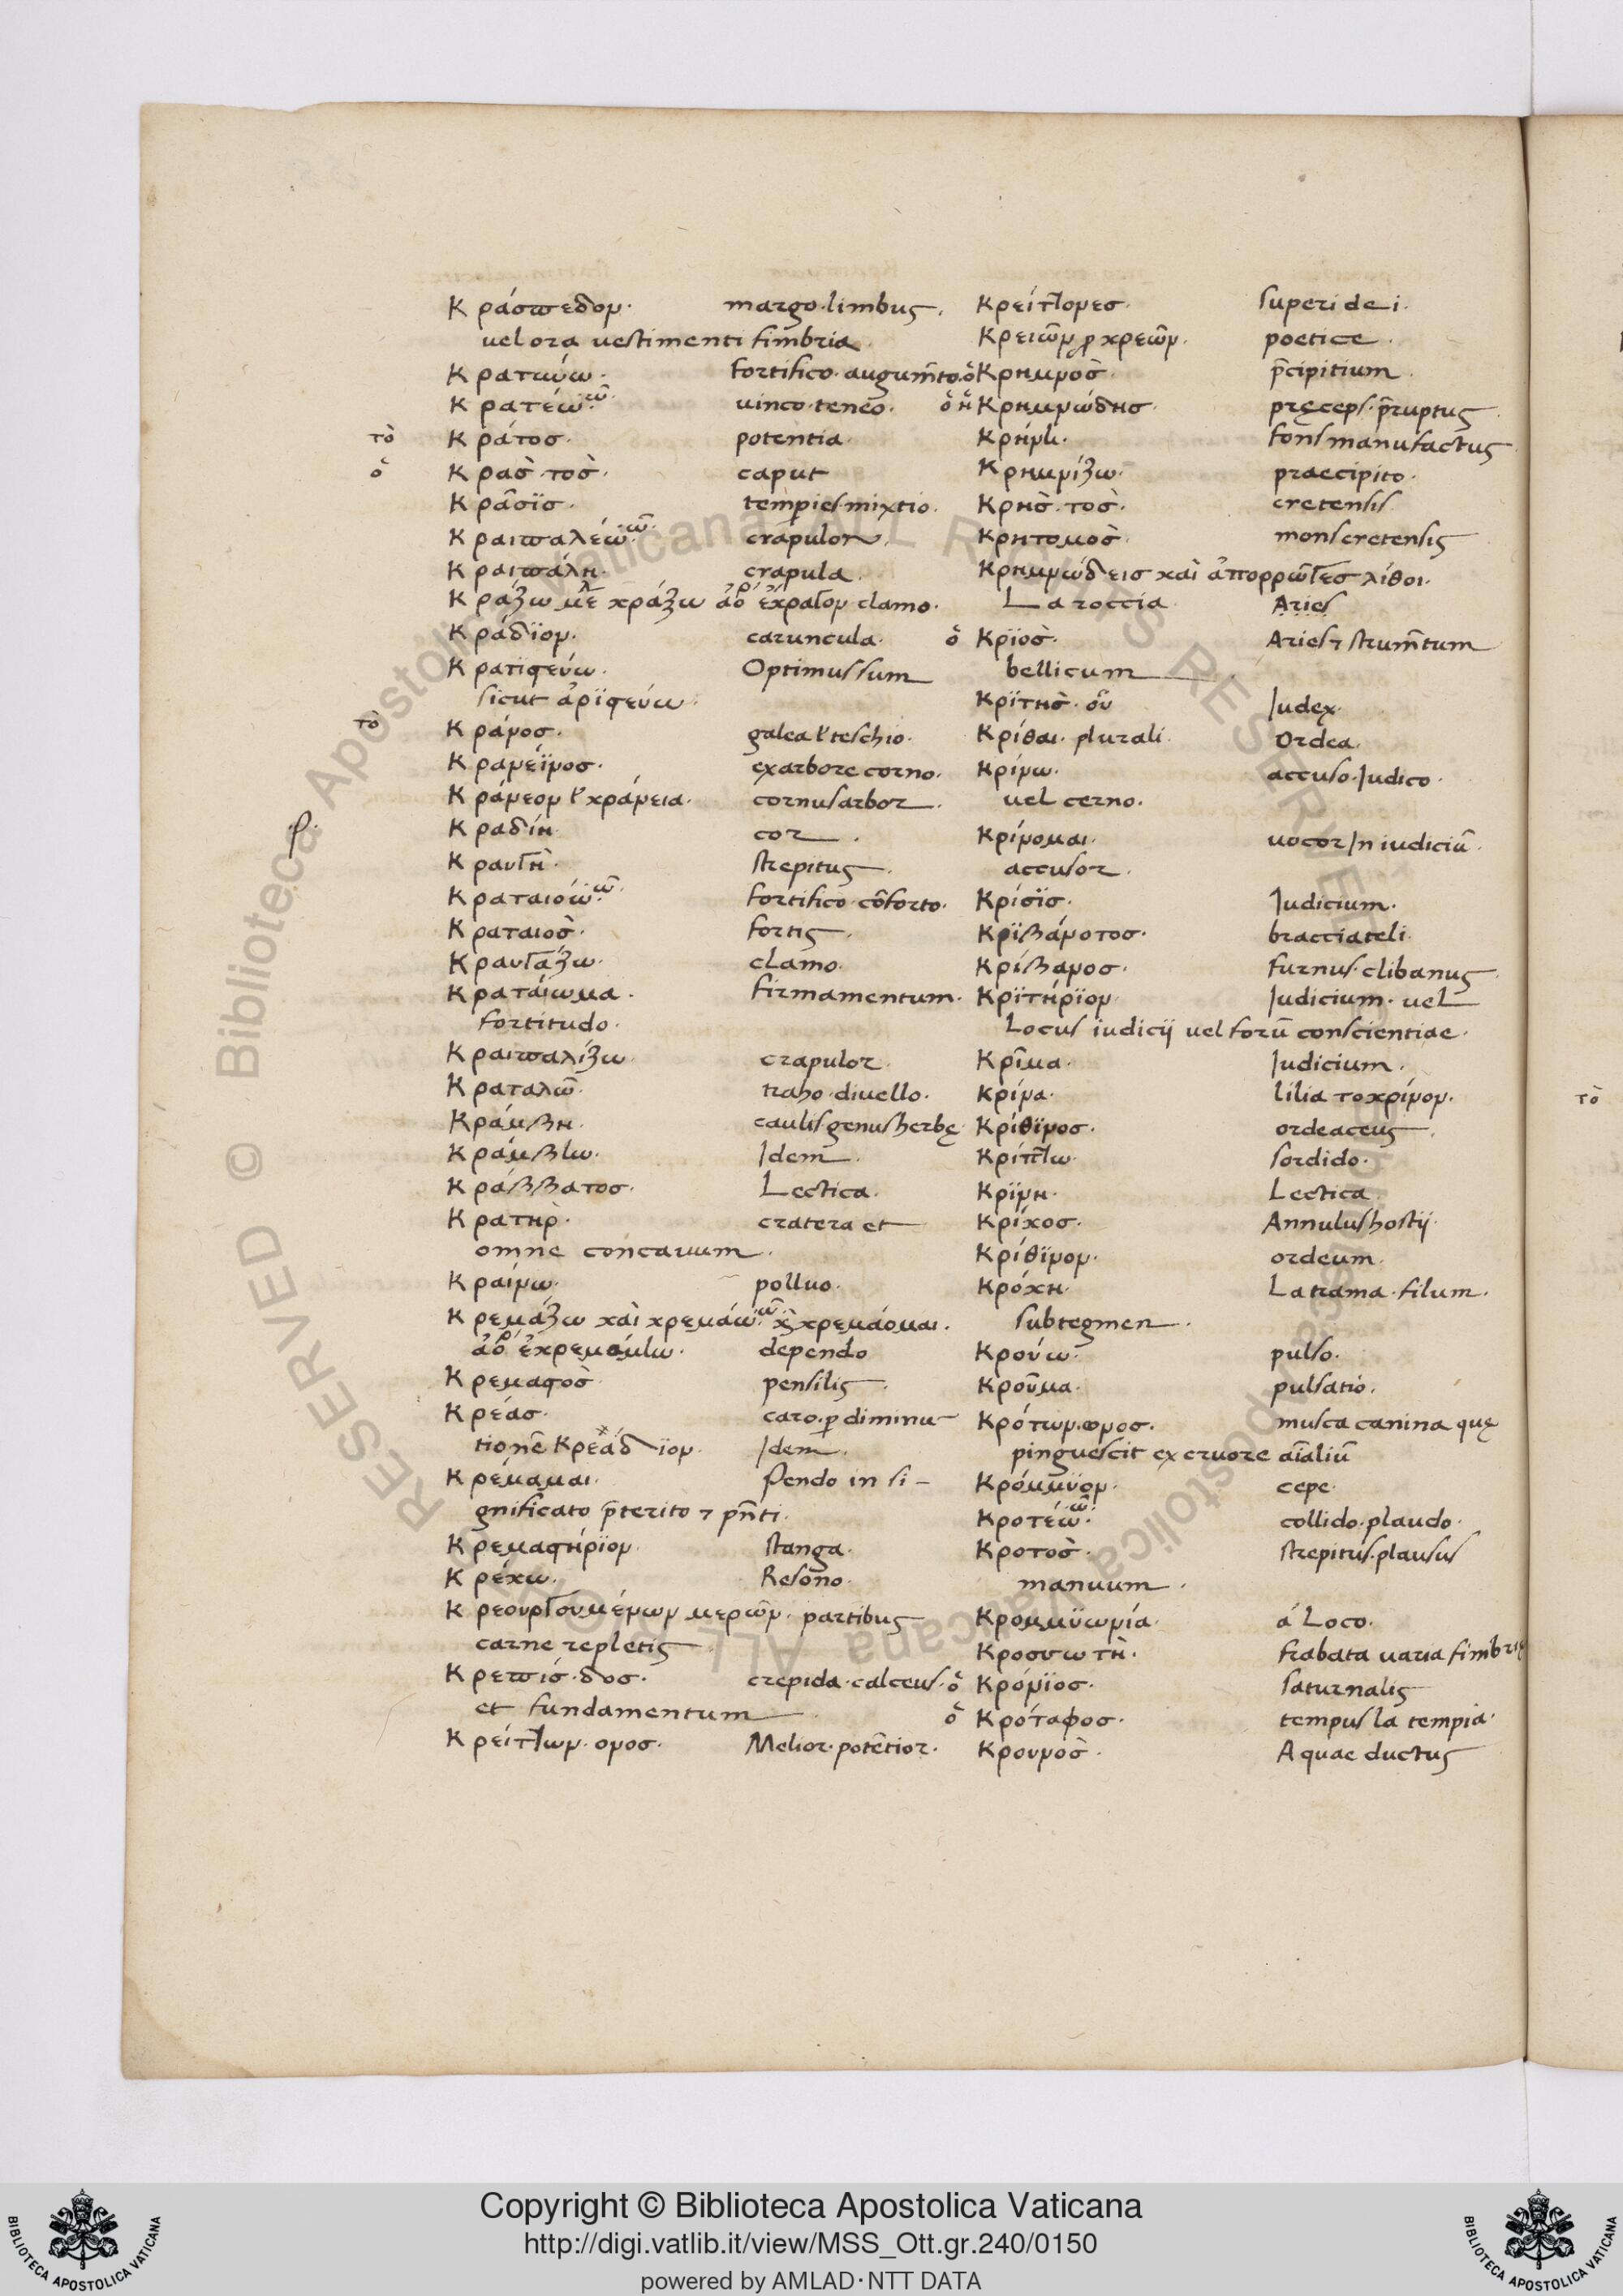 Κράσπεδον· margo·limbus·
uel ora uestimenti fimbria·
Κρατύνω· fortifico·augum̅to·
Κρατέω·ῶ· uinco·teneo·
τὸ Κράτοσ· potentia·
ὁ Κρὰσ·τοσ· caput
Κρᾶσϊσ· temperies·mixtio·
Κραιπαλέω·ῶ· crapulor·
Κραιπάλη· crapula·
Κράζω μὲ κράζω ἀόρ ἔκραγον clamo·
Κράδϊον· caruncula·
Κρατιϛεύω· Optimus sum
sicut ἀρϊϛεύω·
τὸ Κράνοσ· galea l' teschio·
Κρανέϊνοσ· ex arbore corno·
Κράνεον l' κράνεια· cornus arbor·
ρ· Κραδίη· cor·
Κραυγὴ· strepitus·
Κραταιόω·ῶ· fortifico·co̅forto·
Κραταιοσ̀· fortis·
Κραυγάζω· clamo·
Κραταίωμα· firmamentum·
fortitudo·
Κραιπαλίζω· crapulor·
Κραταλῶ· traho·diuello·
Κράμβη· caulis genus herbę·
Κράμβω· Idem·
Κράββατοσ· Lectica·
Κρατὴρ· cratera et
omne concauum·
Κραίνω· polluo·
Κρεμάζω καὶ κρεμάω·ῶ· κ̀ κρεμάομαι·
ἀόρ ἐκρεμάμω· dependo
Κρεμαϛοσ̀· pensilis·
Κρέασ· caro·p diminu-
tione̅ Κρεάδϊον· Idem·
Κρέμαμαι· Pendo in si-
gnificato p̅terito ⁊ pn̅ti·
Κρεμαϛήρϊον· stanga·
Κρέκω· Resono·
Κρεουργουμένων μερῶν· partibus
carne repletis·
Κρεπίσ·δοσ· crepida·calceus·
et fundamentum·
Κρείττων·ονοσ· Melior·pote̅tior·
Κρείττονεσ· superi dei·
Κρειῶν p κρεῶν· poetice·
ὁ Κρημνοσ̀· p̅cipitium·
ὁ ἡ Κρημνώδησ· pręceps·p̅ruptus·
Κρήνη· fons manufactus·
Κρημνίζω· praecipito·
Κρησ̀·τοσ̀· cretensis·
Κρητομοσ̀· mons cretensis
Κρημνώδεισ καὶ ἀπορρῶγεσ λίθοι·
La roccia· Aries
ὁ Κρϊοσ̀· Aries ⁊ strum̅tum
bellicum
Κρϊτησ̀·οῦ Judex·
Κρίθαι·plurali· Ordea·
Κρίνω· accuso·Judico·
uel cerno·
Κρίνομαι· uocor In iudiciu̅·
accusor·
Κρίσϊσ· Judicium·
Κρϊβάνοτοσ· bracciateli·
Κρίβανοσ· furnus·clibanus·
Κρϊτήρϊον· Judicium·uel
Locus iudicij uel foru̅ conscientiae·
Κρῖμα· Judicium·
Κρίνα· lilia το κρίνον·
Κρίθϊνοσ· ordeaceus·
Κρίπτω· sordido·
Κρϊνη· Lectica·
Κρίκοσ· Annulus hostij·
Κρίθϊνον· ordeum·
Κρόκη· La trama·filum·
subtegmen·
Κρούω· pulso·
Κροῦμα· pulsatio·
Κρότων·ωνοσ· musca canina quę
pinguescit ex cruore a̅ialiu̅
Κρόμμϋον· cepe·
Κροτέω·ῶ· collido·plaudo·
Κροτοσ̀· strepitus·plausus
manuum·
Κρομμϋωνία· á Loco·
Κροσσωτὴ· trabata uaria fimbrię
ὁ Κρόνϊοσ· saturnalis
ὁ Κρόταφοσ· tempus la tempia·
Κρουνοσ̀· Aquae ductus
τὸ
© Biblioteca Apostolica Vaticana ALL RIGHTS RESERVED © Biblioteca Apostolica Vaticana ALL RIGHTS RESERVED
Copyright © Biblioteca Apostolica Vaticana
http://digi.vatlib.it/view/MSS_Ott.gr.240/0150
powered by AMLAD·NTT DATA
BIBLIOTECA APOSTOLICA VATICANA
BIBLIOTECA APOSTOLICA VATICANA